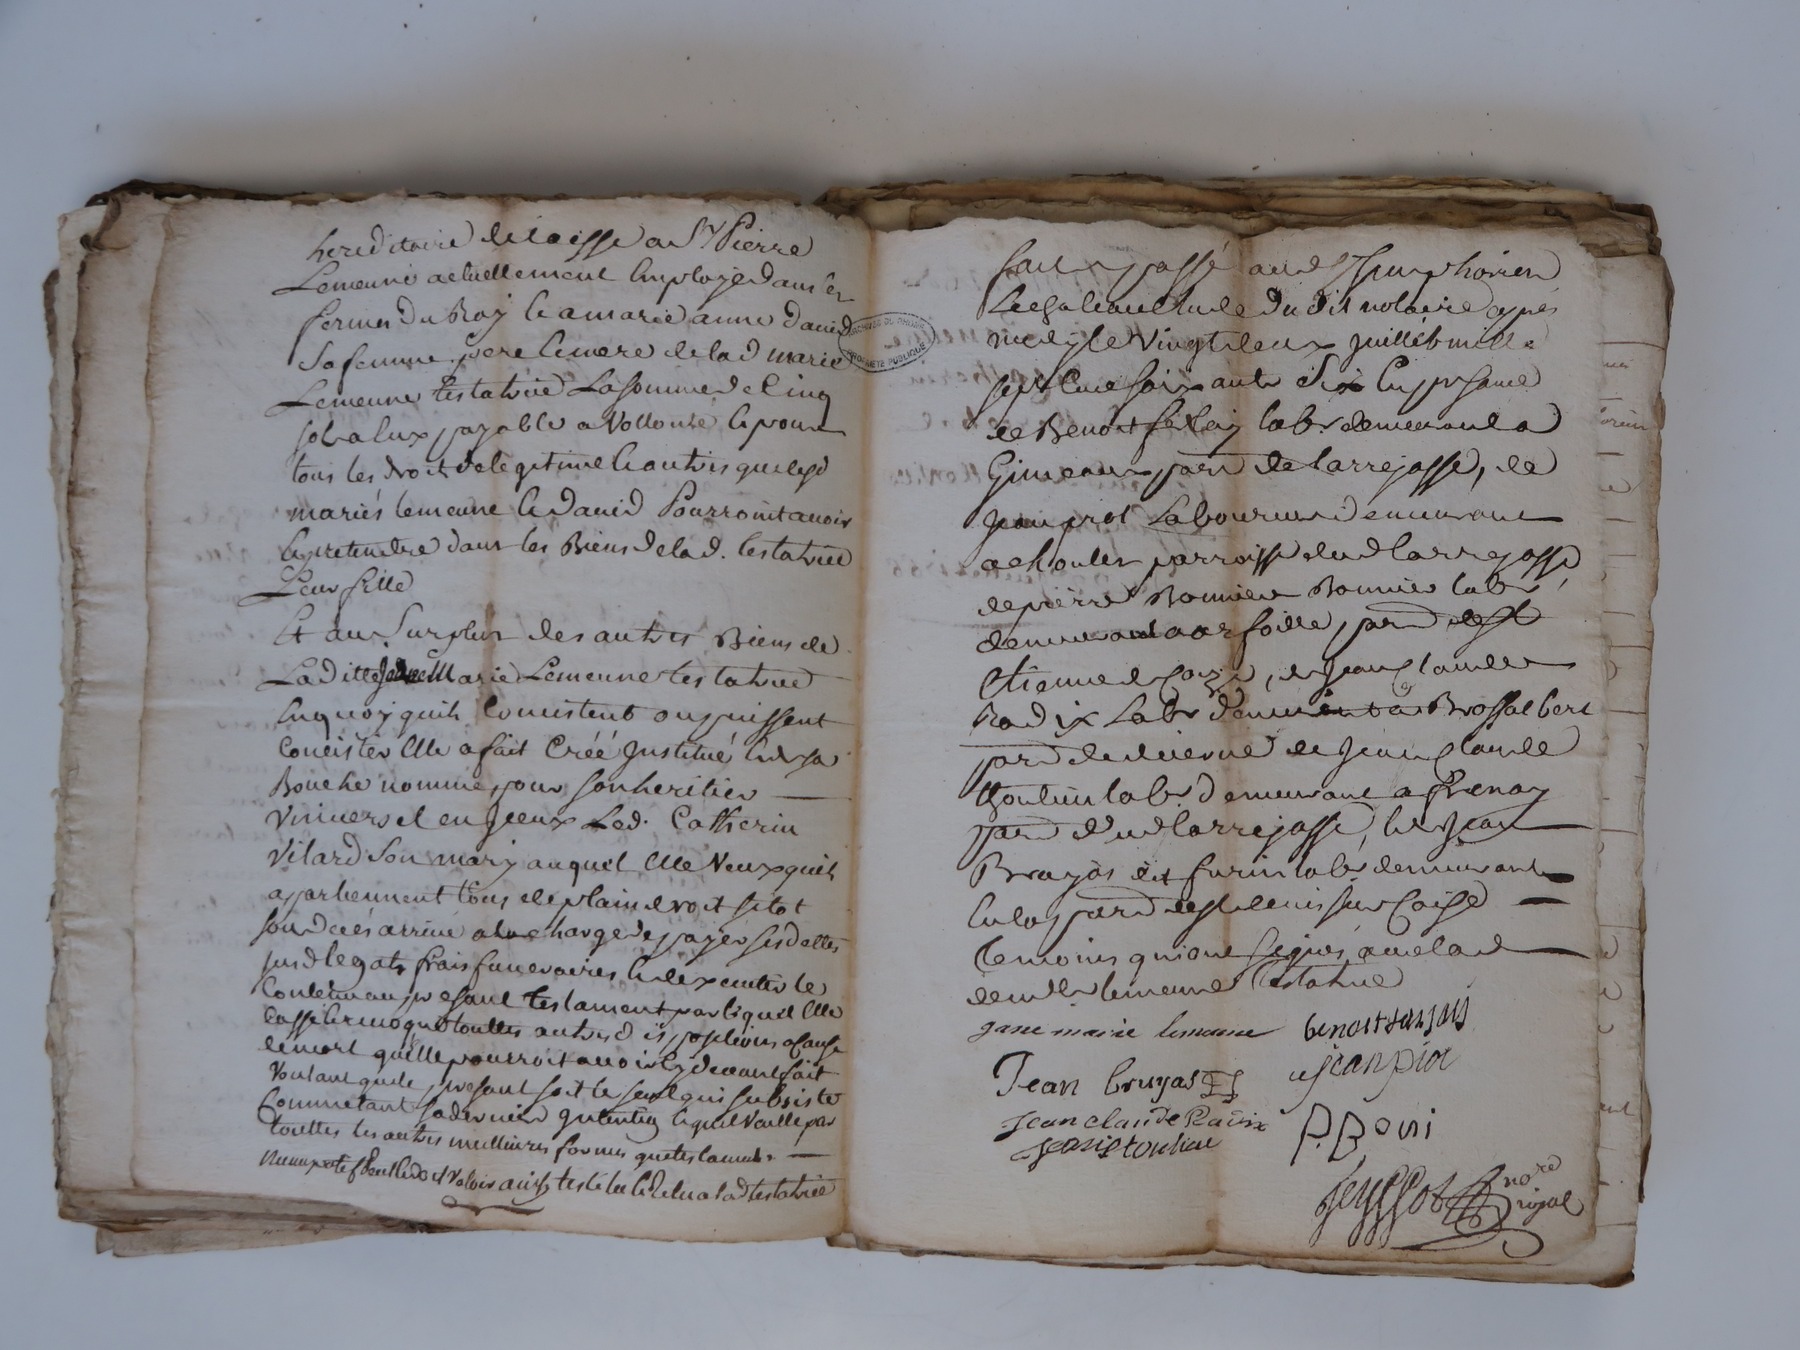 hereditaire delaisse a Sr Pierre
Lemeune actuellement Employé dans les
fermes du Roy & a marie anne david
Sa femme, pere & mere de lad marie
Lemeune testatrice La somme de Cinq
sols a Eux payable a Vollonté & pour
tous les droit de legitime & autres que lesd
mariés lemeune & david Pourroint avoir
& pretendre dans les Biens de lad. testatrice
Leur fille
Et au Surplus des autres Biens de
Laditte Jeane Marie Lemeune testatrice
En quoy quils Concistent ou puissent
Concister Elle a fait Créé Institué & de sa
Bouche nommé pour son heritier
Vniversel en Iceux Led. Catherin
Vilard Son mary auquel Elle Veux quils
appartiennent tous de plain droit sitot
son deces arrivé a la charge de payer ses dettes
susd legats frais funeraires & dexecuter le
Contenu au present testament par lequel Elle
Casse & revoque touttes autres dispositions a cause
de mort quelle pourroit avoir cy devant fait
Voulant que le present soit le seul qui subsiste
Commetant sa derniere Intention & quil Vaille par
touttes les autres meilleures formes que testament
ainsy testé leu & relu a lad testatrice
fait & passé aud St Simphorien
Le chateau Etude du dit notaire apres
midy le Vingt deux juillet mille
sept Cent soixante Six En presance
de Benoit labr demeurant a
Gimeaux parr de larrejasse, de
Jean prot Laboureur demeurant
a chouler parroisse dud larrejasse
de pierre Bonnier Bonnier labr
demeurant a arfoille, parr de St
Etienne de Coize, de Jean Claude
Radix Labr demeurant a Brossalbert
parr de duerne de Jean Claude
thoulieu labr demeurant a frenay
parr dud larrejasse, & de Jean
Bruyas dit furin labr demeurant
En la parr de St denis sur Coise
temoins qui ont signés avec lad
demlle lemeune testatrice
gane marie lemeune
benoit
Jean bruyas
jean piot
Jean claude Radix
P. Boni
Jean toulieu
Peyssot nore
royal
ARCHIVES DU RHÔNE
PROPRIÉTÉ PUBLIQUE